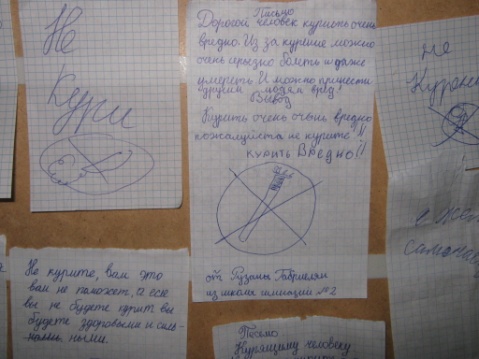 Не
Кури
Письмо
Дорогой человек курить очень
вредно. Из за курение можно
очень серьёзно болеть и даже
умереть. И можно принести
другим людям вред!
Вывод
Курить очень очень вредно
пожалуйста не курите!!
КУРИТЬ ВРЕДНО!!
от Рузаны Габриелян
из школы гимназии №2
Не курите, вам это
вам не поможет, а если
вы не будете курит вы
будете здоровыми и силь-
ными.
Не
Письмо
Курящему человеку